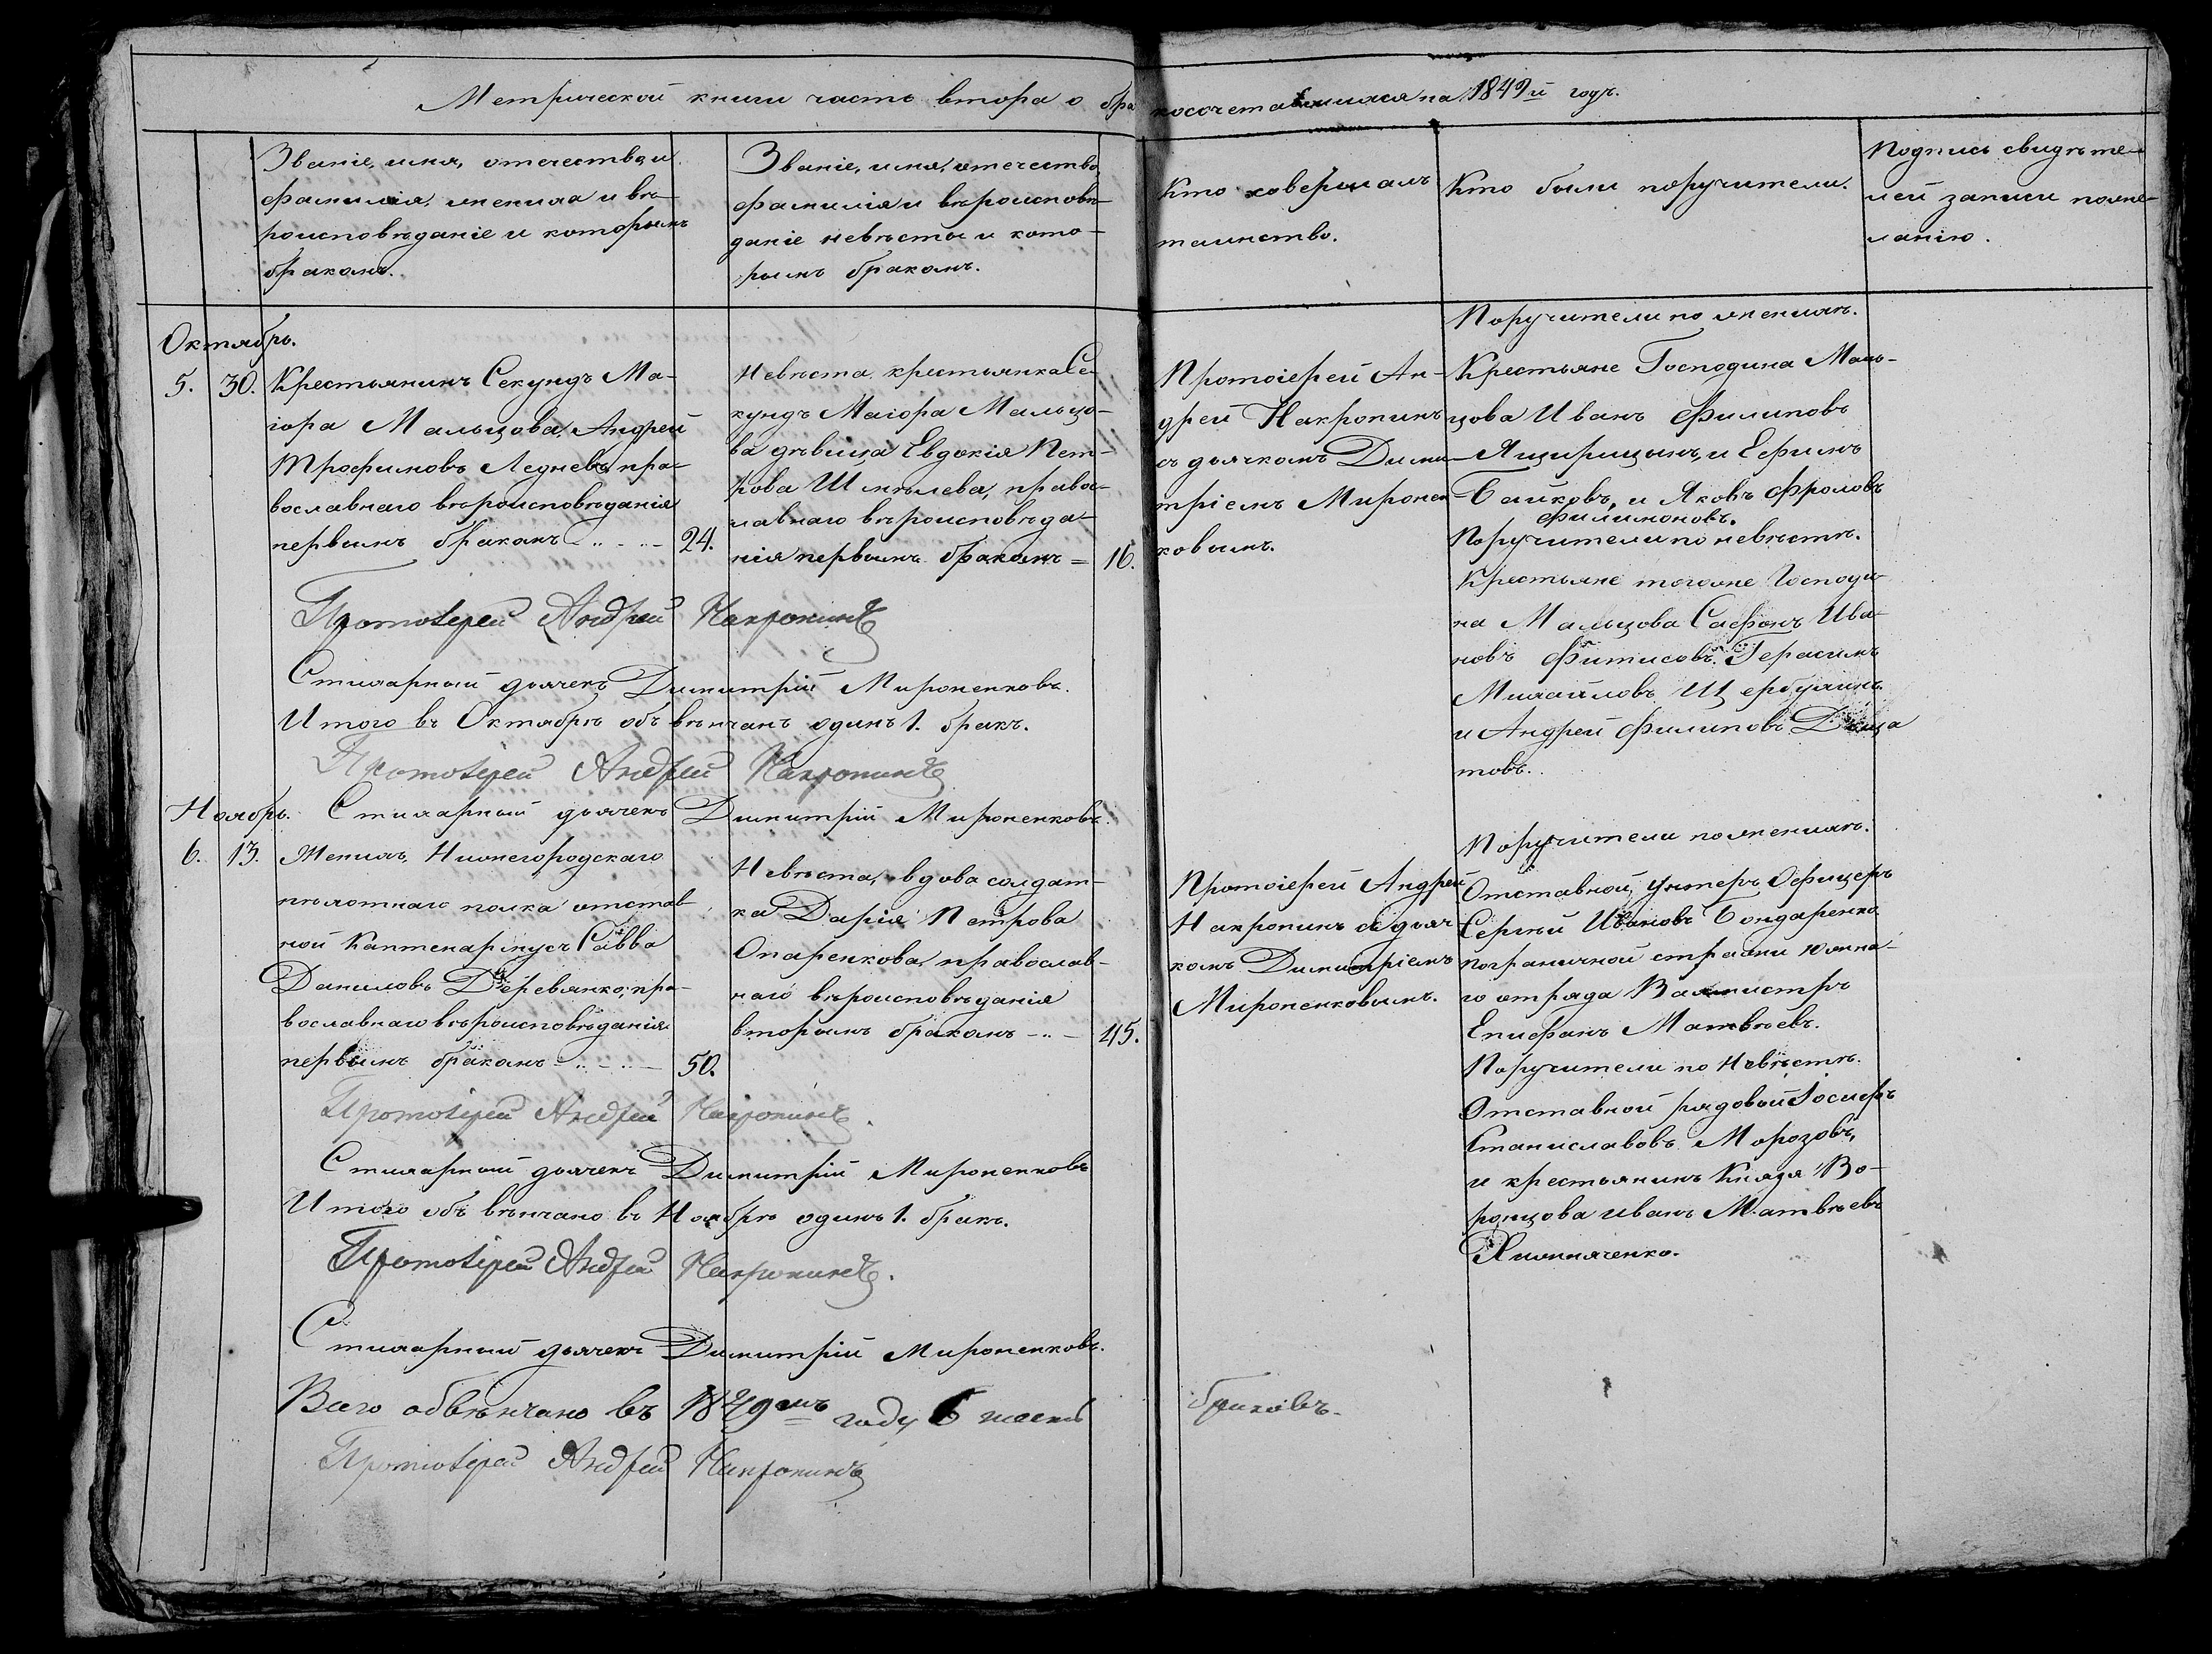 Метрической книги часть втора о бракосочетавшихся на 1849й годъ.
Званіе, имя, отечество и
фамилія, жениха и вѣ-
роисповѣданіе и которымъ
бракомъ.
Званіе, имя, отечество,
фамилія и вѣроисповѣ-
даніе невѣсты и кото-
рымъ бракомъ.
Кто совершалъ
таинство.
Кто были поручители.
Подпись свидѣте-
лей записи по же-
ланію.
Октябрь.
5. 30. Крестьянинъ Секундъ Ма-
іора Мальцова, Андрей
Трофимовъ Ледневъ, пра-
вославнаго вѣроисповѣданія
первымъ бракомъ 24.
Невѣста крестьянка Се-
кундъ Маіора Мальцо-
ва дѣвица Евдокія Пет-
рова Шмѣлева, правос-
лавнаго вѣроисповѣда-
нія первымъ бракомъ = 16.
Протоіерей Ан-
дрей Накропинъ
съ дьячкомъ Дими-
тріемъ Миронен
ковымъ.
Поручители по женихѣ.
Крестьяне Господина Маль-
цова Иванъ Филиповъ
Ящирицынъ, и Ефимъ
Байковъ, и Яковъ Фроловъ
Филимоновъ.
Поручители по невѣстѣ.
Крестьяне тогоже Господи-
на Мальцова Сафонъ Ива-
новъ Фитисовъ. Герасимъ
Михайловъ Щербулинъ
и Андрей Филиповъ
товъ.
Протоіерей Андрей Накропинъ
Стихарный дьячекъ Димитрій Мироненковъ.
Итого въ Октябрѣ обвѣнчанъ одинъ 1. бракъ.
Протоіерей Андрей Накропинъ
Стихарный дьячекъ Димитрій Мироненковъ.
Ноябрь.
6. 13. Женихъ, Нижегородскаго
пѣхотнаго полка отстав-
ной Каптенармусъ Савва
Даниловъ Деревянко, пра-
вославнаго вѣроисповѣданія
первымъ бракомъ 50.
Невѣста, вдова солдат-
ка Дарія Петрова
Опаренкова, православ-
наго вѣроисповѣданія
вторымъ бракомъ 45.
Протоіерей Андрей
Накропинъ съ дьяч
комъ Димитріемъ
Мироненковымъ.
Поручители по женихѣ.
Отставной, Унтеръ Офицеръ
Сергѣй Ивановъ Бондаренко
пограничной стражи Южна-
го отряда Вахмистръ
Епифанъ Матвѣевъ.
Поручители по Невѣстѣ.
Отставной рядовой Іосифъ
Станиславовъ Морозовъ,
и крестьянинъ Князя Во-
ронцова Иванъ Матвѣевъ
Хижняченко.
Протоіерей Андрей Накропинъ.
Стихарный дьячекъ Димитрій Мироненковъ
Итого обвѣнчано въ Ноябрѣ одинъ 1. бракъ.
Протоіерей Андрей Накропинъ.
Стихарный дьячекъ Димитрій Мироненковъ.
Всего обвѣнчано въ 1849мъ году 6 шесть браковъ.
Протоіерей Андрей Накропинъ